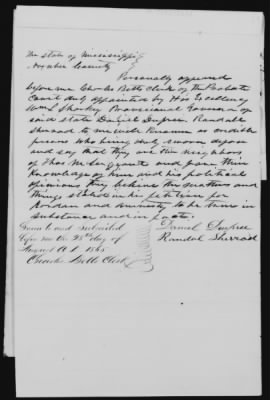 The State of Mississippi
Noxubee County
Personally appeared
before me Charles Betts Clerk of the Probate
Court duly appointed by His Excellency
Wm L Sharkey Provisional Governor of
said state Daniel Dupree Randall
Sherrod to me well Known as credible
persons who being duly sworn depose
and say that they are the neighbors
of Thos M and from their
Knowledge of him and his political
opinions they believe the matters and
things stated in his petition for
Pardon and Amnesty to be true in
substance and in fact.
Sworn to and subscribed
before me the 25th day of
August A D 1865
Charles Betts Clerk
Daniel Dupree
Randal Sherrod